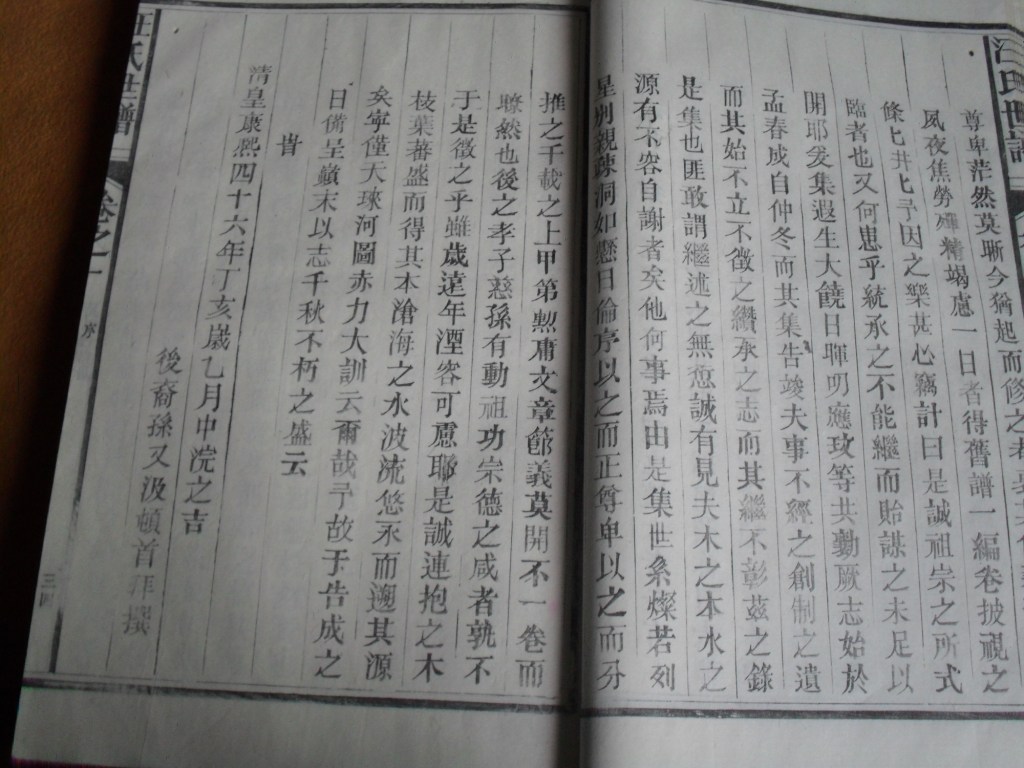 汪氏世譜
尊卑茫然莫晰今猶起而修之者
夙夜焦勞殫精竭慮一日者得舊譜一編卷披視之
條匕井匕予因之樂甚心竊計曰是誠祖崇之所式
臨者也又何思乎統承之不能繼而貽謀之未足以
開耶爰集遐生大饒日暉明應攻等共勷厥志始於
孟春成自仲冬而其集告竣夫事不經之創制之遺
而其始不立不徵之纘承之志而其繼不彰茲之錄
是集也匪敢謂繼述之無愆誠有見夫木之本水之
源有不容自謝者矣他何事焉由是集世系燦若列
星別親疎洞如懸日倫序以之而正尊卑以之而分
推之千載之上甲第勲庸文章節義莫開不一卷而
瞭然也後之孝子慈孫有動祖功宗德之感者孰不
于是徵之乎雖歲遠年湮容可慮耶是誠連抱之木
枝葉蕃盛而得其本滄海之水波流悠永而遡其源
矣寧僅天球河圖赤刀大訓云爾哉予故于告成之
日備呈顛末以志千秋不朽之盛云
旹
清皇康熙四十六年丁亥歲乙月中浣之吉
後裔孫又汲頓首拜撰
汪氏世譜 卷之一 序